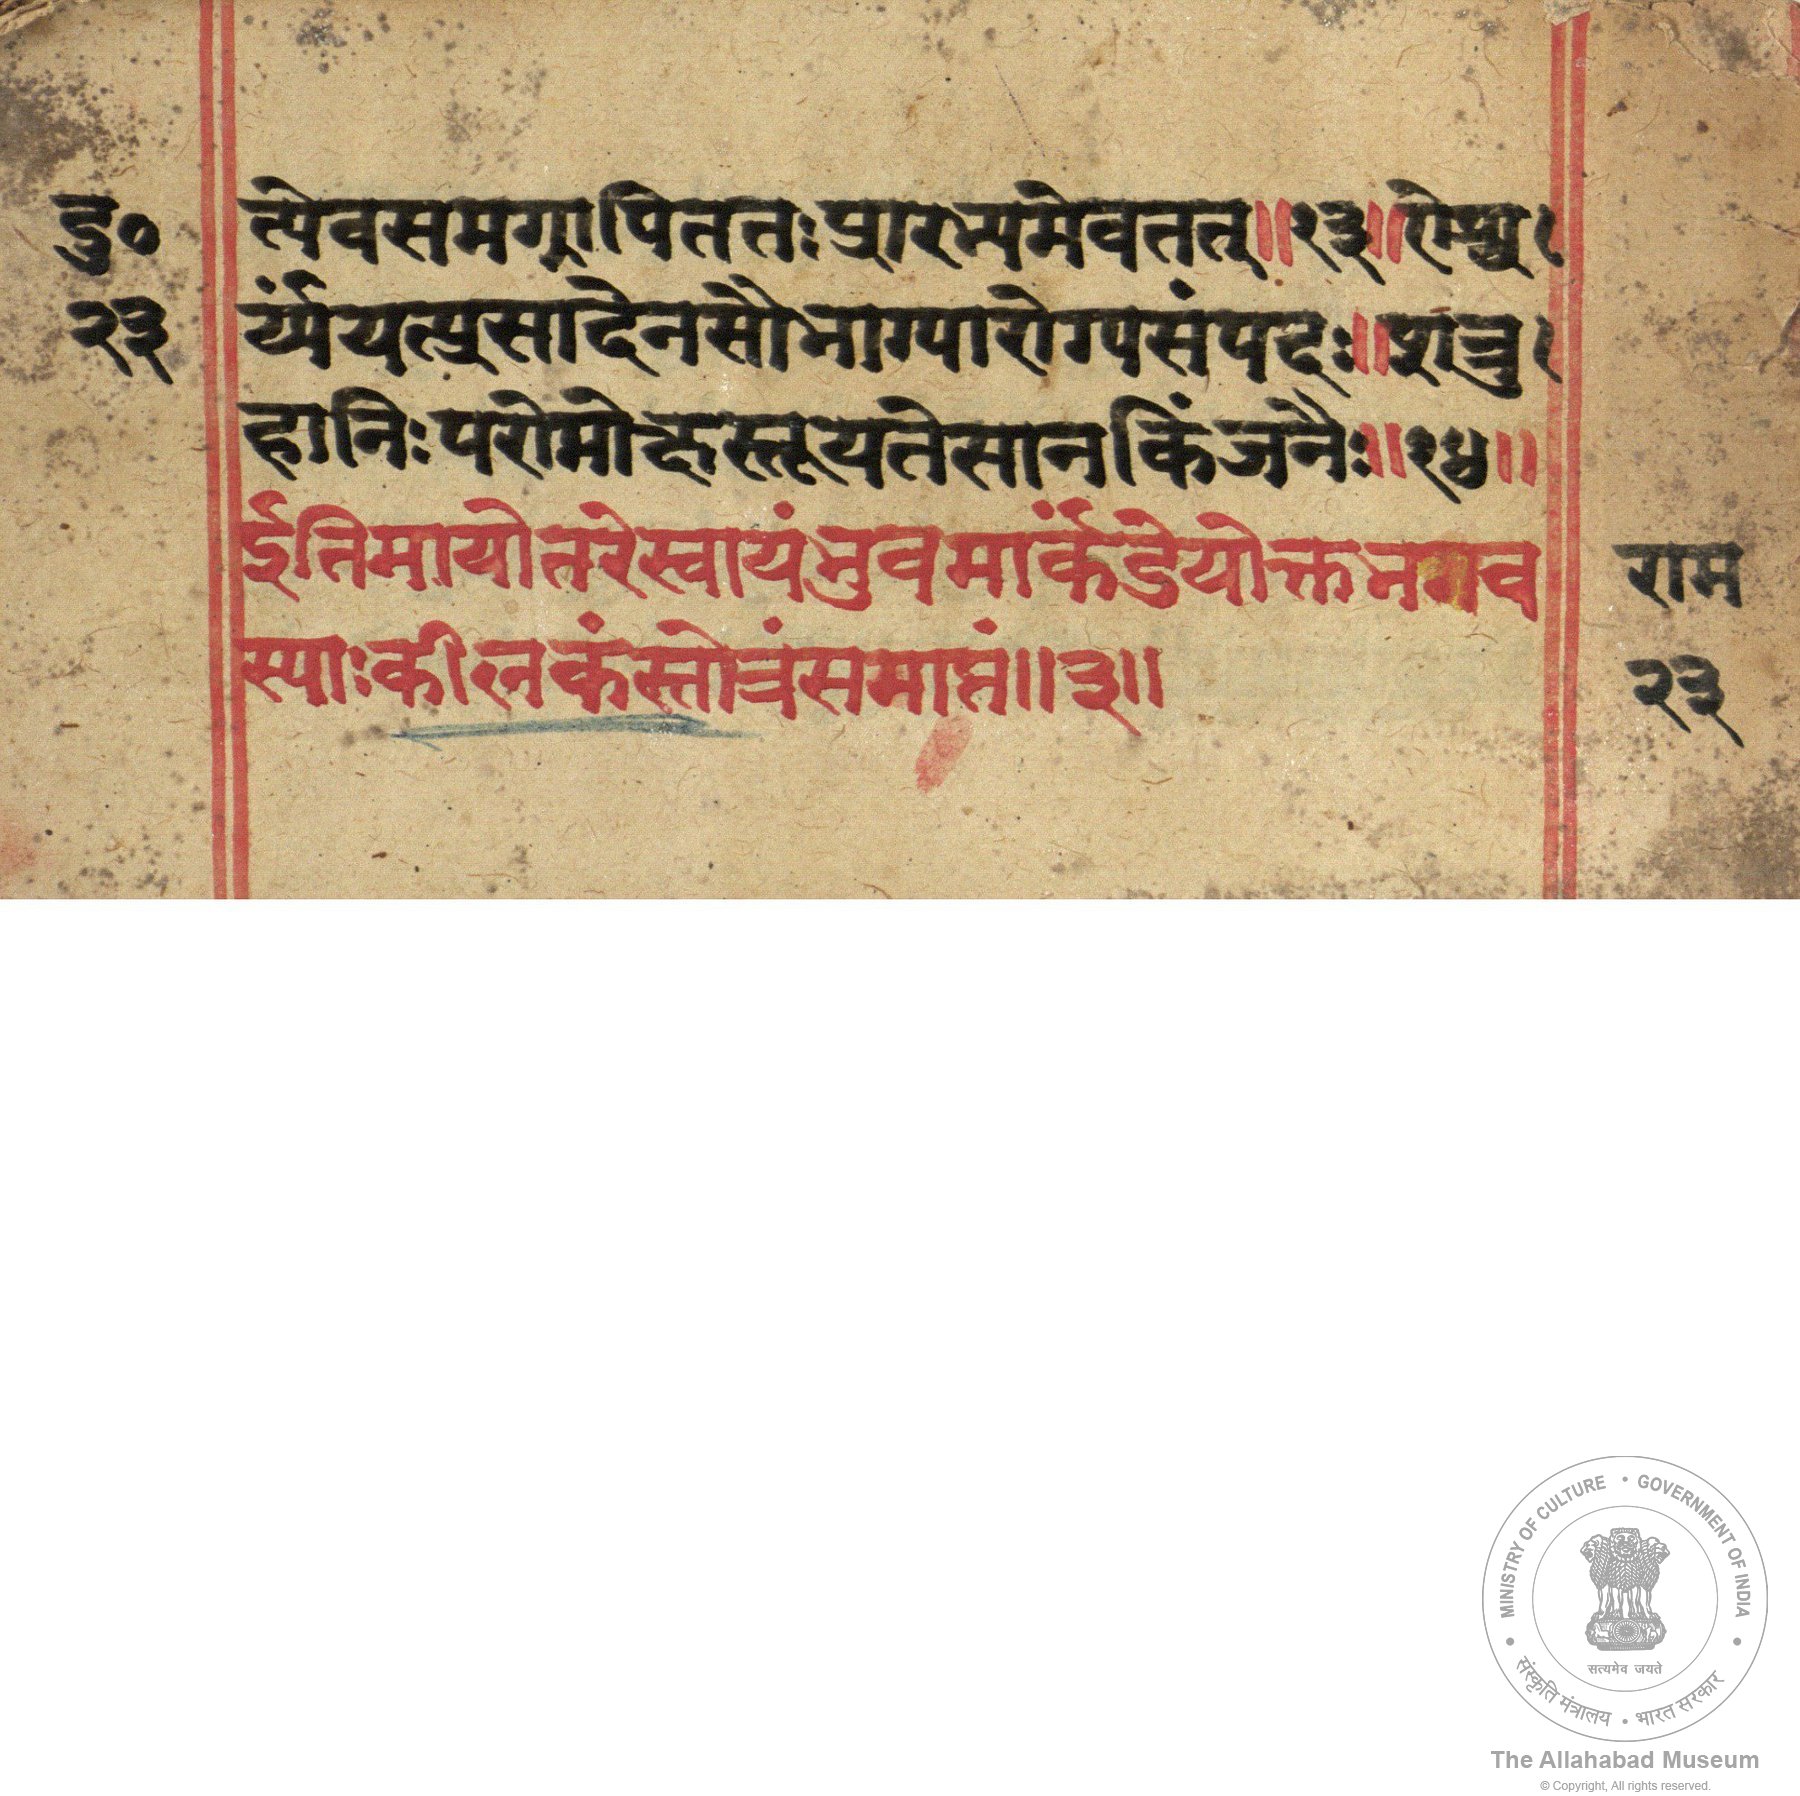 दु०
२३
त्येवसमग्रापिततःप्रारभ्यमेवतत्॥२३॥ऐश्व
र्य्यंयत्प्रसादेनसौभाग्यारोग्यसंपदः॥शत्रु
हानिःपरोमोक्षस्तूयतेसानकिंजनैः॥२४॥
ईतिमार्योत्तरेस्वायंभुवमार्कंडेयोक्तभगव
त्याःकीलकंस्तोत्रंसमाप्तं॥३॥
राम
२३
MINISTRY OF CULTURE • GOVERNMENT OF INDIA
सत्यमेव जयते
संस्कृति मंत्रालय • भारत सरकार
The Allahabad Museum
© Copyright, All rights reserved.